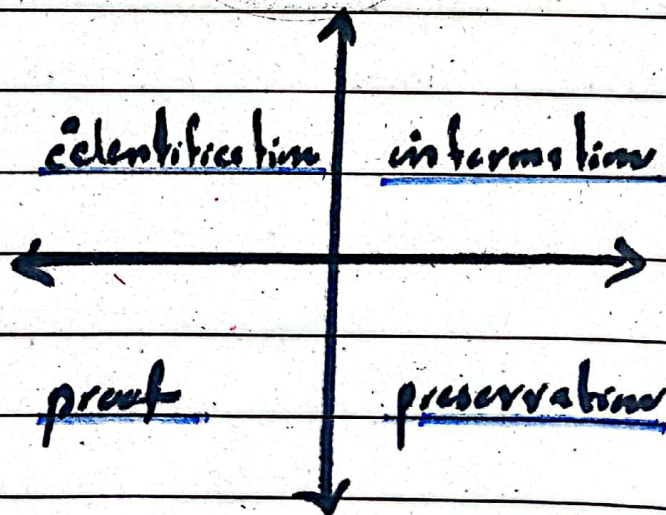 identification information
proof preservation